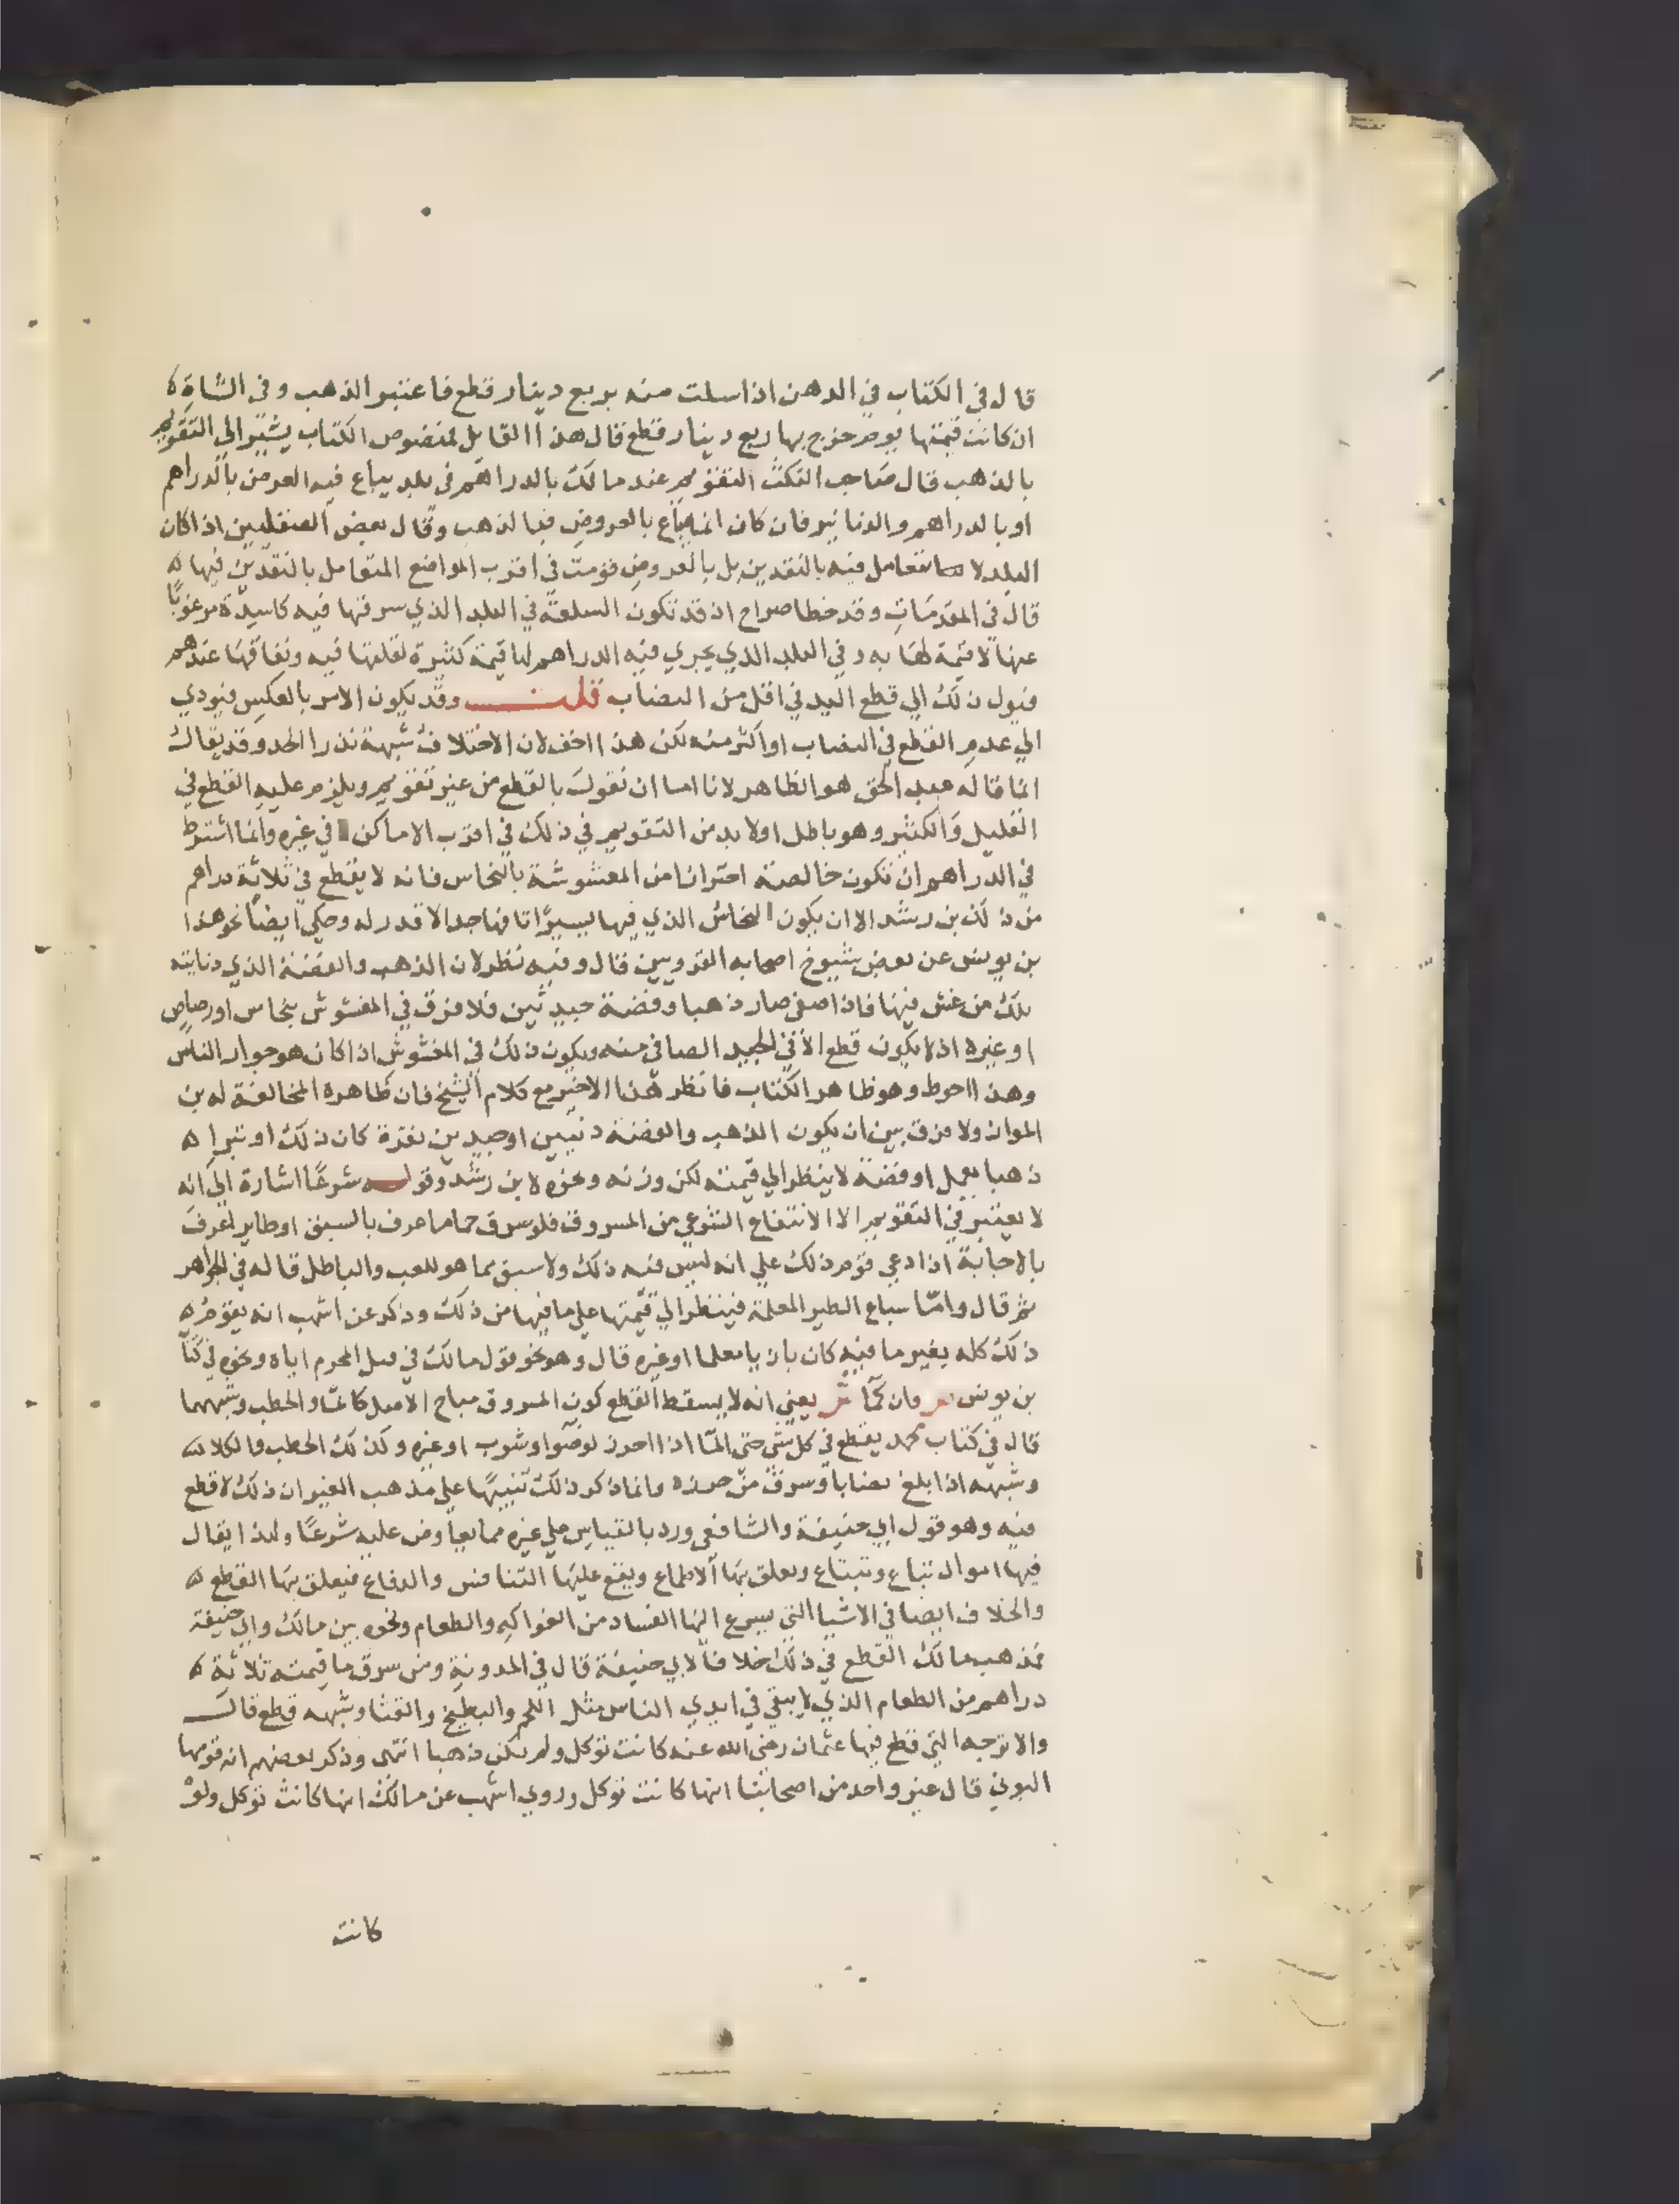 قال في الكتاب في الدهن اذا سلت منه بربع دينار قطع فاعتبر الذهب وفي الشاة ه
ان كانت قيمتها يوم خرج بها ربع دينار قطع قال هذا القايل فمنصوص الكتاب يشير الي التقويم
بالذهب قال صاحب النكت التقويم عند مالك بالدراهم في بلد يباع فيه العروض بالدراهم
او بالدراهم والدنانير فان كان انما يباع بالعروض فبالذهب وقال بعض الصقليين اذا كان
البلد لا يتعامل فيه بالنقدين بل بالعروض قومت في اقرب المواضع المتعامل بالنقدين فيها ه
قال في المقدمات وقد خطا صراح اذ قد تكون السلعة في البلد الذي سرقها فيه كاسدة مرغوبًا
عنها لا قيمة لها به وفي البلد الذي يجري فيه الدراهم لها قيمة كثيرة لقلتها فيه ونفاقها عندهم
فيول ذلك الي قطع اليد في اقل من النصاب قلت وقد يكون الامر بالعكس فيودي
الي عدم القطع في النصاب او اكثر منه لكن هذا اخف لان الاختلاف شبهة تدرا الحد وقد يقال
انما قاله عبد الحق هو الظاهر لانا اما ان نقول بالقطع من غير تقويم ويلزم عليه القطع في
القليل والكثير وهو باطل اولا بد من التقويم في ذلك في اقرب الاماكن في غيره وانما اشترط
في الدراهم ان تكون خالصة احترازا من المغشوشة بالنحاس فانه لا يقطع في ثلاثة دراهم
من ذلك بن رشد الا ان يكون النحاس الذي فيها يسيرًا تافها جدا لا قدر له وحكي ايضا نحو هذا
بن يونس عن بعض شيوخ اصحابه القرويين قال وفيه نظر لان الذهب والفضة الذي دنايته
تلك من غش فيها فاذا صفي صار ذهبا وفضة جيدتين فلا فرق في المغشوش بنحاس او رصاص
او غيره اذ لا يكون قطع الا في الجيد الصافي منه ويكون ذلك في المغشوش اذا كان هو جواز الناس
وهذا احوط وهو ظاهر الكتاب فانظر هذا الاخير مع كلام الشيخ فان ظاهره المخالفة له بن
المواز ولا فرق بين ان يكون الذهب والفضة دنيين او جيدين نقرة كان ذلك او تبرا ه
ذهبا يعمل او فضة لا ينظر الي قيمته لكن وزنه ونحوه لابن رشد وقوله شرعًا اشارة الي انه
لا يعتبر في التقويم الا الانتفاع الشرعي من المسروق فلو سرق حماما عرف بالسبق او طاير اعرف
بالاجابة اذا دعي قوم ذلك علي انه ليس فيه ذلك ولا سبق مما هو للعب والباطل قاله في الجواهر
ثم قال وامّا سباع الطير المعلمة فينظر الي قيمتها علي ما فيها من ذلك وذكر عن اشهب انه يقوم ه
ذلك كله بغير ما فيه كان بازيا معلما او غيره قال وهو نحو قول مالك في قتل المحرم اياه ونحوه في كتا
بن يونس وان كمآ ش يعني انه لا يسقط القطع كون المسروق مباح الاصل كالماء والحطب وشبههما
قال في كتاب محمد يقطع في كل شي حتي الما اذا احرز لوضوا وشرب او غيره وكذلك الحطب والكلا
وشبهه اذا بلغ نصابا وسرق من حرزه وانما ذكر ذلك تنبيهًا علي مذهب الغير ان ذلك لا قطع
فيه وهو قول ابي حنيفة والشافعي ورد بالقياس علي غيره مما يعاوض عليه شرعًا ولهذا يقال
فيها اموال تباع وتبتاع ويعلق بها الاطماع ويقع عليها التنافس والدفاع فيعلق بها القطع ه
والخلاف ايضا في الاشيا التي يسرع اليها الفساد من الفواكه والطعام ونحوه بين مالك وابي حنيفة
فمذهب مالك القطع في ذلك خلافًا لابي حنيفة قال في المدونة ومن سرق ما قيمته ثلاثة ه
دراهم من الطعام الذي لا يبقي في ايدي الناس مثل اللحم والبطيخ والقثا وشبهه قطع قال
والاترجه التي قطع فيها عثمان رضي الله عنه كانت توكل ولم تكن ذهبا انتهى وذكر بعضهم انه قومها
البوني قال غير واحد من اصحابنا انها كانت توكل وروي اشهب عن مالك انها كانت توكل ولو
كانت